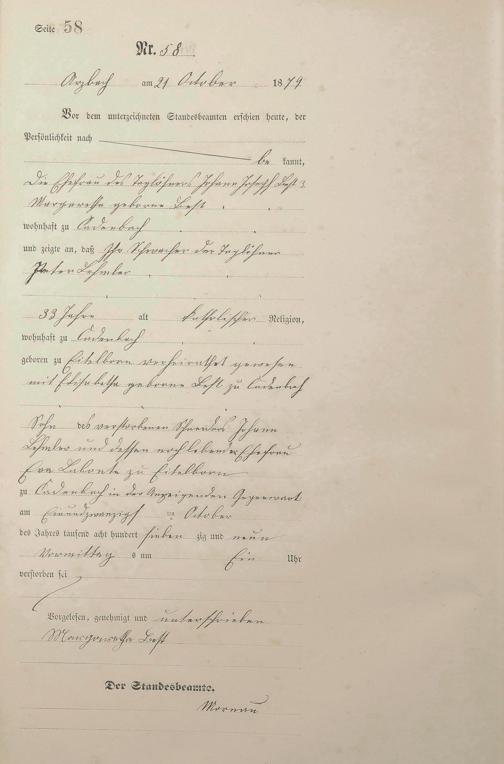 Seite 58
Nr. 58
Arzbach am 21 October 1879
Vor dem unterzeichneten Standesbeamten erschien heute, der
Persönlichkeit nach
be kannt,
die Ehefrau des Taglöhners Johann Joseph Best
Margaretha geborne Best
wohnhaft zu Cadenbach
und zeigte an, daß Ihr Schwacher der Taglöhner
Peter Lehmler
33 Jahre alt katholischer Religion,
wohnhaft zu Cadenbach
geboren zu Eitelborn verheirathet gewesen
mit Elisabetha geborne Best zu Cadenbach
Sohn des verstorbenen Johann
Lehmler und dessen noch lebender Ehefrau
Eva Labonte zu Eitelborn
zu Cadenbach in der Anzeigenden Gegenwart
am Einundzwanzigst October
des Jahres tausend acht hundert sieben zig und neun
Vormittag s um Ein Uhr
verstorben sei
Vorgelesen, genehmigt und unterschrieben
Margaretha Best
Der Standesbeamte.